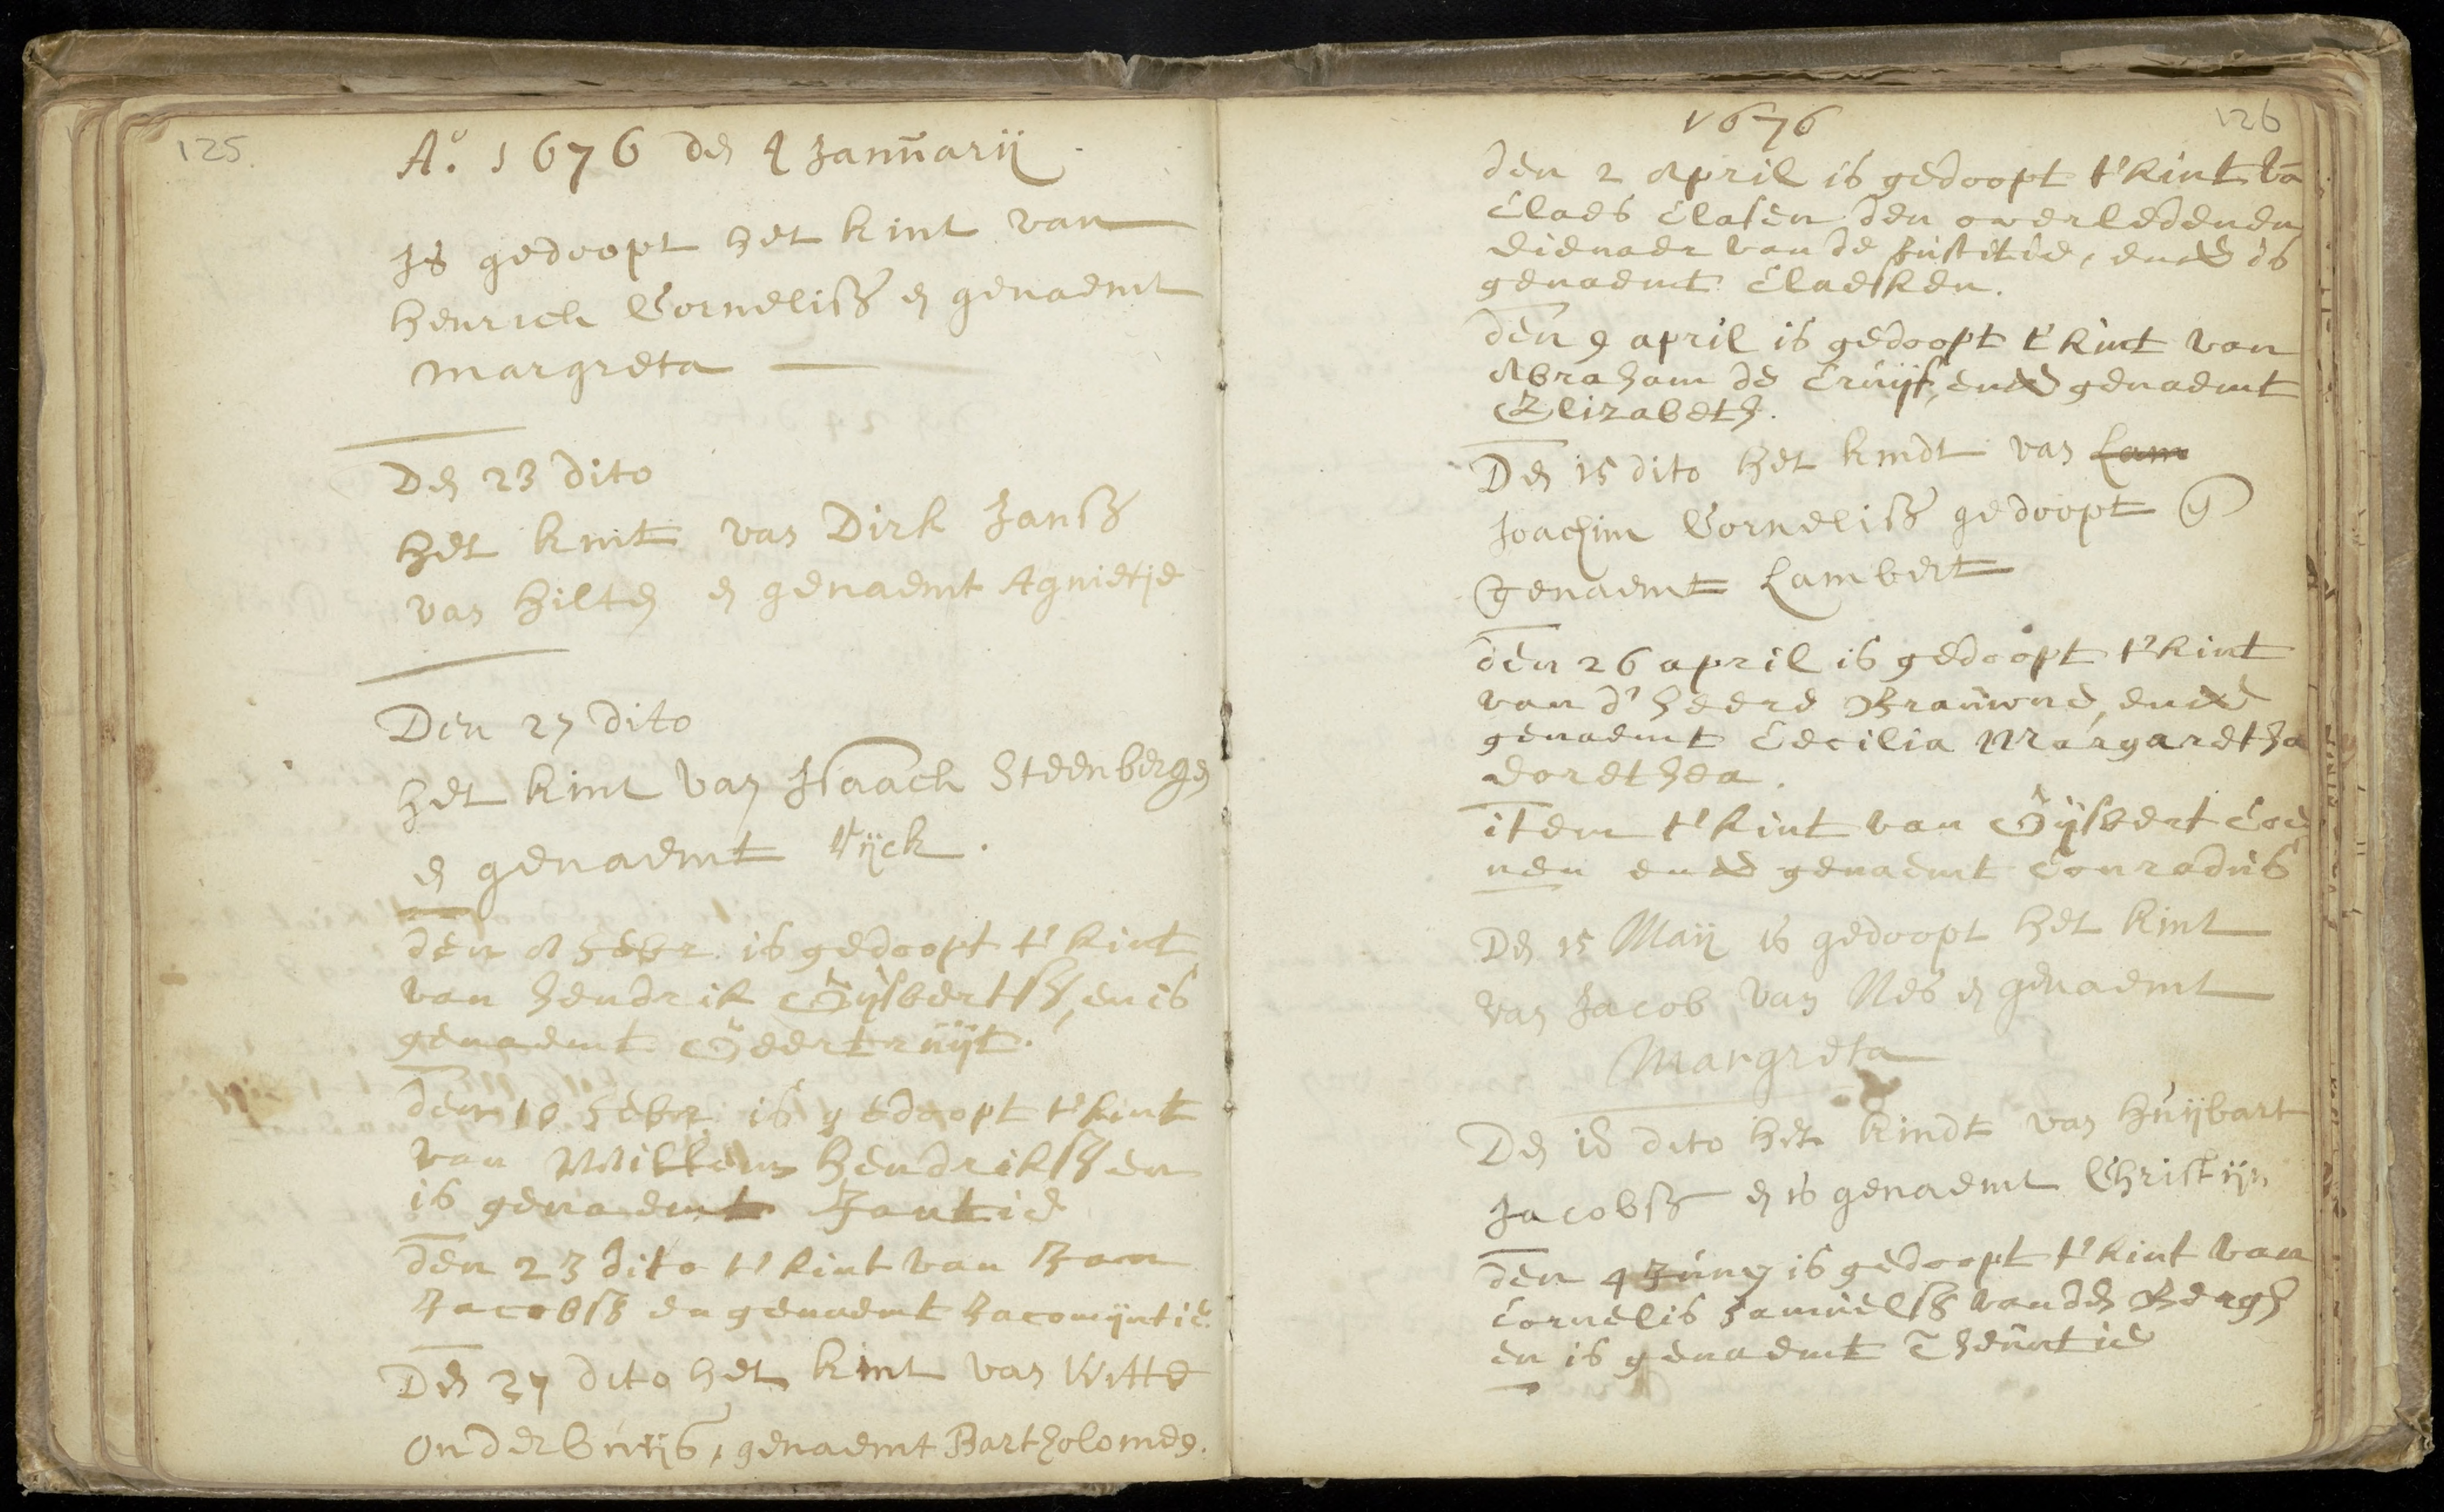 125.
A:º 1676 den 4 Januarij
Is gedoopt het kint van
Henrich Corneliss en genaemt
Margreta
Den 23 dito
Het kint van Dirk Janss
van Hilten en genaemt Agnietje
Den 27 dito
het kint van Isaach Steenbergen
en genaemt Rijck.
den febr. is gedoopt t'kint
van hendrik Gijsbertss, en is
genaemt Geertruijt.
den 10 febr. is gedoopt t'kint
van Willem Hendrikss en
is genaemt Jantie
den 23 dito t'kint van Jan
Jacobss en genaemt Jacomijntie
Den 27 dito het kint van Witte
Onderbuijs, genaemt Bartholomeus.
1676
126
den 2 April is gedoopt t'kint va
Claes Clasen den overledenen
dienaer van de Justitie, ende is
genaemt Claesken.
den 9 april is gedoopt t'kint van
Abraham de Cruijf, ende genaemt
Elizabeth.
Den 15 dito het kindt van Lam
Joachim Corneliss gedoopt en
genaemt Lambert
den 26 april is gedoopt t'kint
van d'heere Brauwne, ende
genaemt Cecilia Margaretha
dorethea.
item t'kint van Gijsbert Coe
nen ende genaemt Conradus
Den 15 Maij is gedoopt het kint
van Jacob van Nes en genaemt
Margreta
Den 18 dito het kindt van Huijbart
Jacobss en is genaemt Christijn
den 4 Juny is gedoopt t'kint van
Cornelis Samuelss vanden Bergh
en is genaemt Theuntie